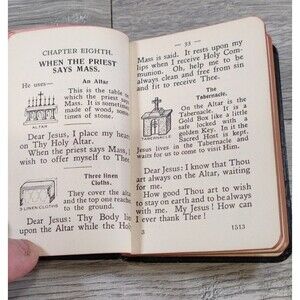 CHAPTER EIGHTH,
WHEN THE PRIEST
SAYS MASS.
He uses—
An Altar
This is the table on
which the priest says
Mass. It is sometimes
made of wood, some-
times of stone.
ALTAR
Dear Jesus, I place my heart
on Thy Holy Altar.
When the priest says Mass, I
wish to offer myself to Thee.
Three linen
Cloths.
They cover the alta
and the top one reache
to the ground.
3 LINEN CLOTHS
Dear Jesus: Thy Body lie
upon the Altar while the Holy
— 33 —
Mass is said. It rests upon my
lips when I receive Holy Com-
munion. Oh, help me to be
always clean and free from sin
and fit to receive Thee.
The
Tabernacle.
On the Altar is the
Tabernacle. It is a
Gold Box like a little
house closed with a
golden Key. In the
Sacred Host
Jesus lives in the Tabernacle and
waits for us to come to visit Him.
Dear Jesus: I know that Thou
art always on the Altar, waiting
for me.
How good Thou art to wish
to stay on earth and to be always
with me. My Jesus! How can
I ever thank Thee!
3
1513